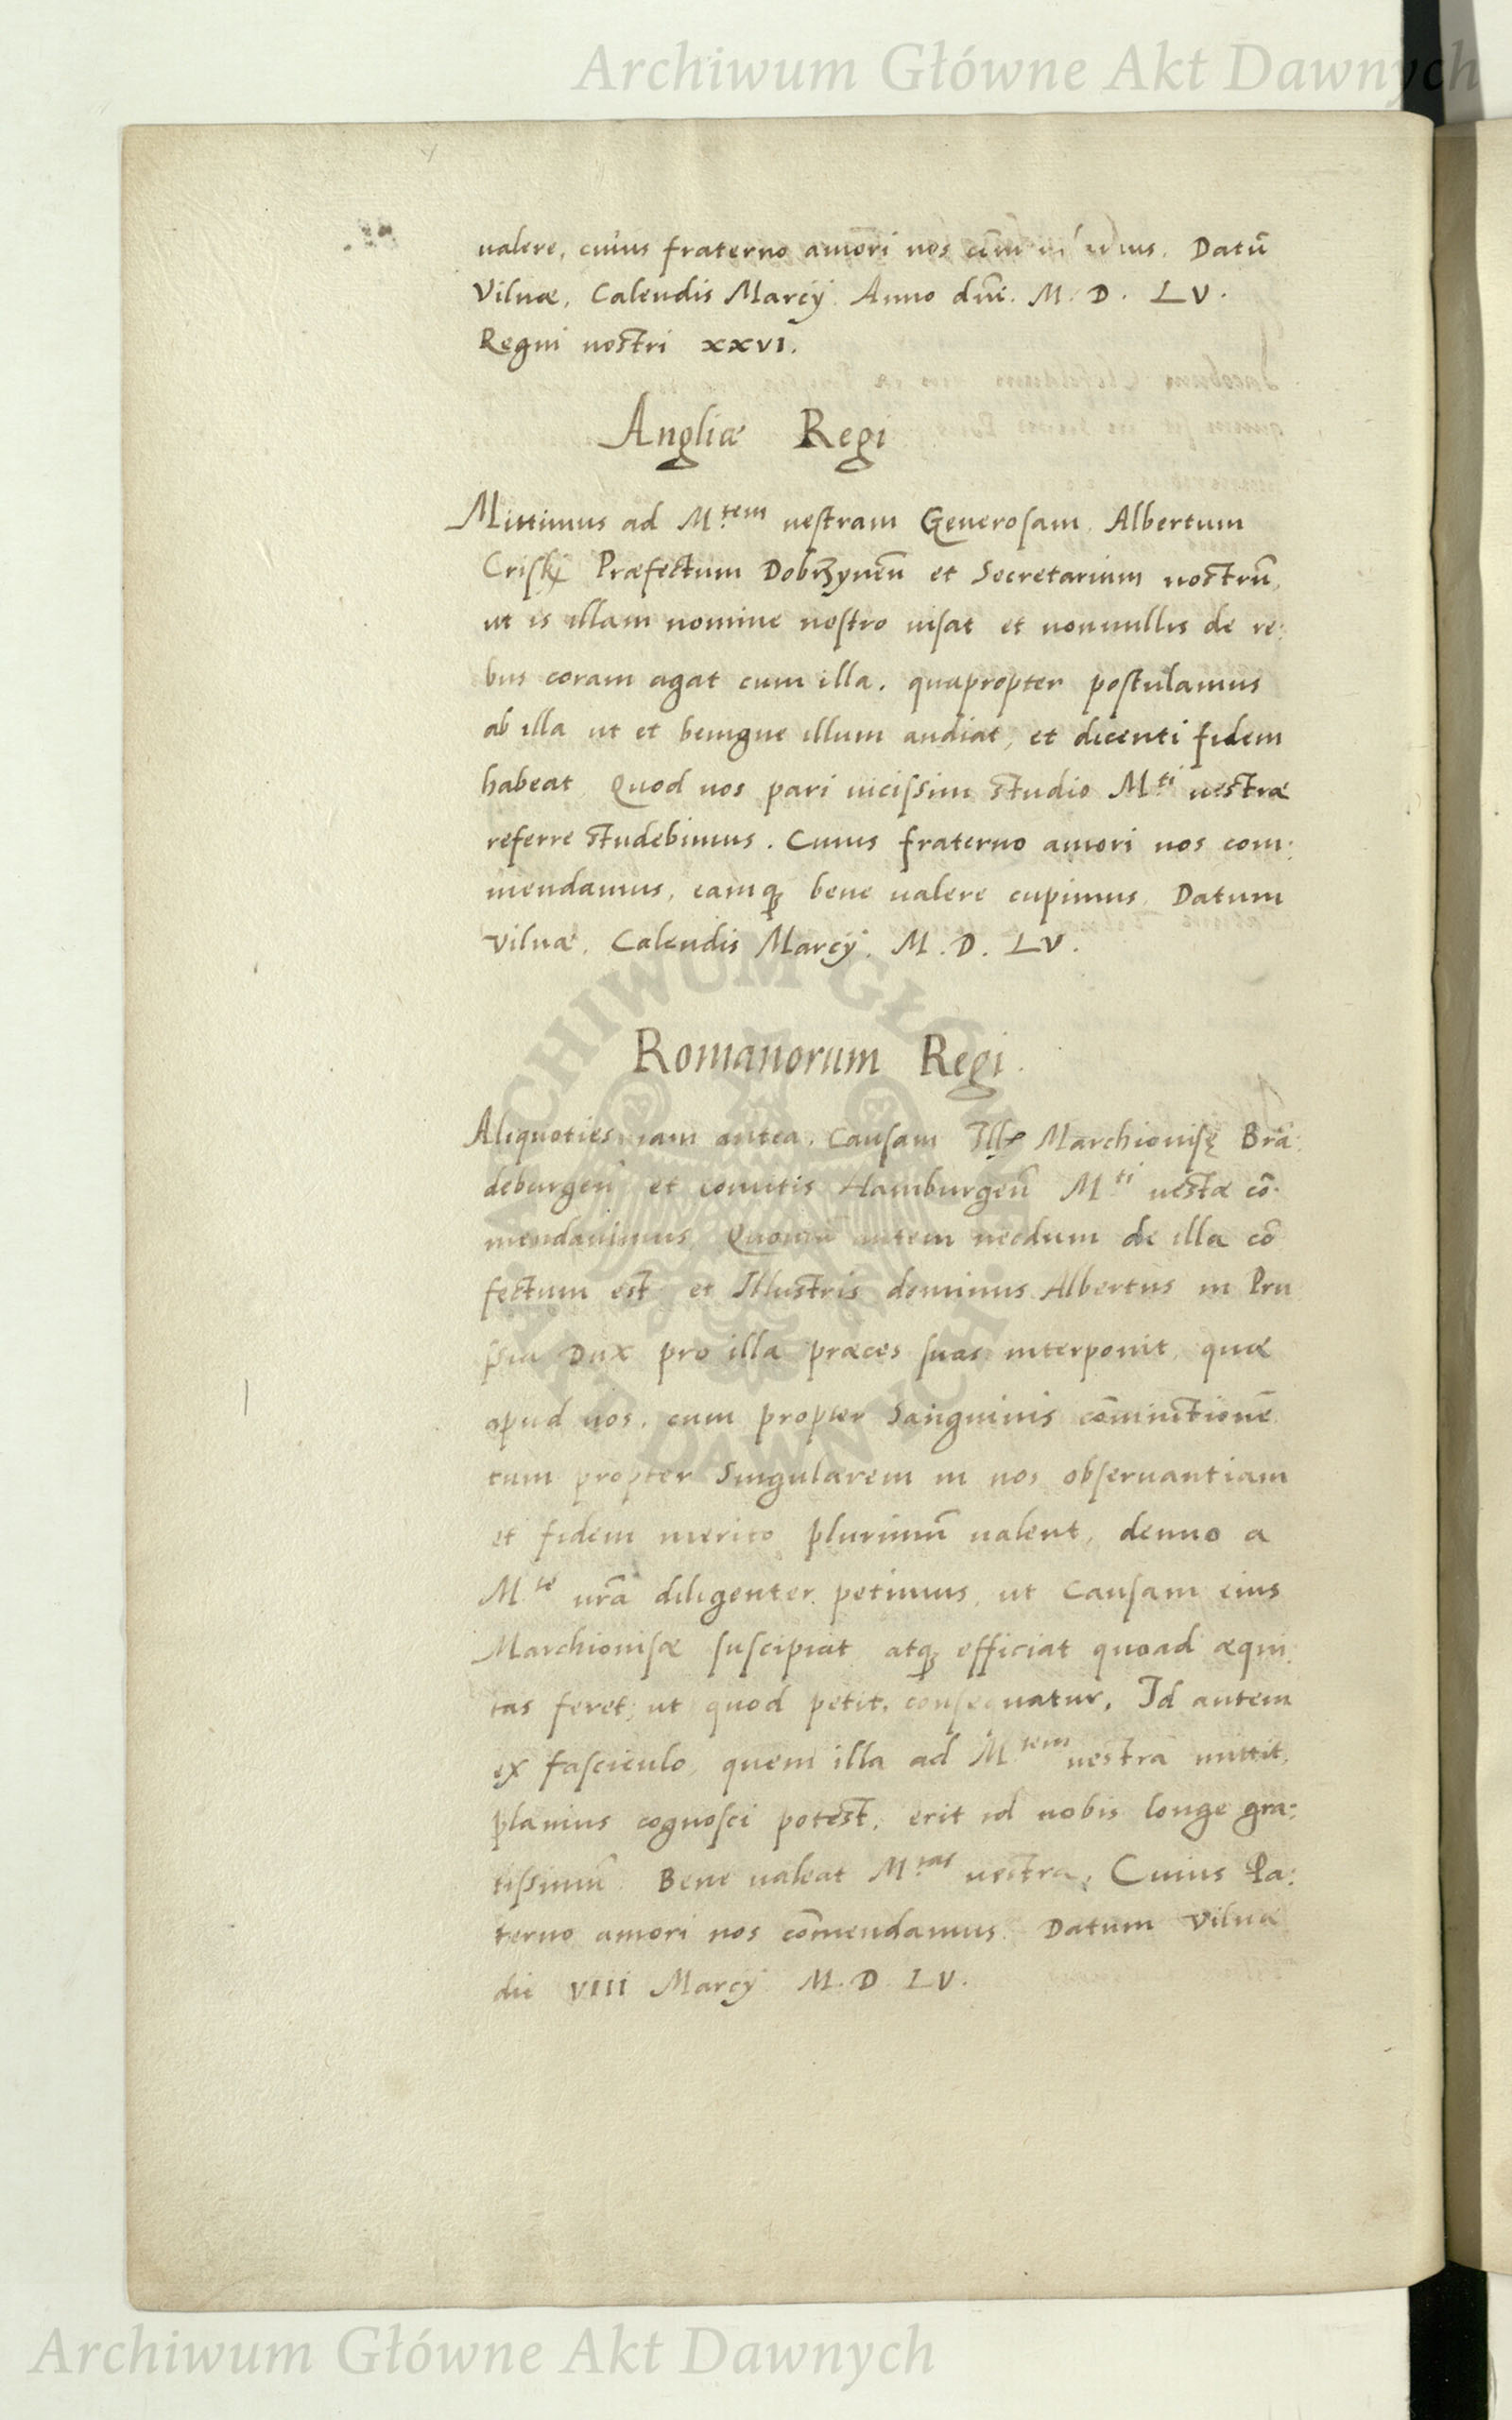 Archiwum Główne Akt Dawnych
valere, cuius fraterno amori nos. Datū
Vilnae, Calendis Marcÿ. Anno dñi. M. D. LV.
Regni nostri XXVI.
Angliæ Regi
Mittimus ad M.tem vestram Generosam Albertum
Præfectum Dobrzynen̄ et Secretarium nostrū,
ut is illam nomine nostro visat et nonnullis de re:
bus coram agat cum illa. quapropter postulamus
ab illa ut et benigne illum audiat, et dicenti fidem
habeat. Quod nos pari vicissim studio M.ti vestræ
referre studebimus. Cuius fraterno amori nos com:
mendamus, eamq; bene valere cupimus. Datum
Vilnæ. Calendis Marcÿ. M. D. LV.
Romanorum Regi.
Aliquoties iam antea, causam Marchionisę Brā:
deburgen̄ et comitis Hamburgen̄ M.ti vestæ cō:
mendavimus. autem necdum de illa cō
fectum est et Illustris dominus Albertus in Pru
ssia Dux pro illa præces suas interponit, quæ
apud nos, cum propter Sanguinis
tum propter Singularem in nos observantiam
et fidem merito plurimū valent, denuo a
M.te vrā diligenter petimus, ut causam eius
Marchionisæ suscipiat atq; efficiat quoad æqui:
tas feret, ut quod petit, consequatur. Id autem
ex fasciculo, quem illa ad M.tem vestrā mittit,
planius cognosci potest, erit id nobis longe gra:
tissimū. Bene valeat M.tas vestra, Cuius Pa:
terno amori nos cōmendamus. Datum Vilnæ
die VIII Marcÿ M. D. LV.
ARCHIWUM GŁÓWNE AKT DAWNYCH
Archiwum Główne Akt Dawnych